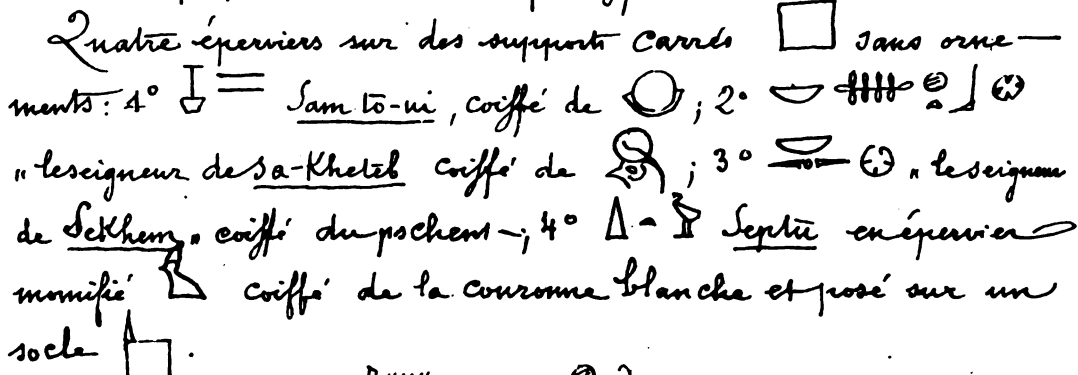 Quatre éperviers sur des supports carrés sans orne-
ments: 4° Sam to-ui, coiffé de ; 2°
"le seigneur de Sa-Khetib coiffé de ; 3° "le seigneur
de Sekhem" coiffé du pschent—; 4° Septu en épervier
momifié coiffé de la couronne blanche et posé sur un
socle .